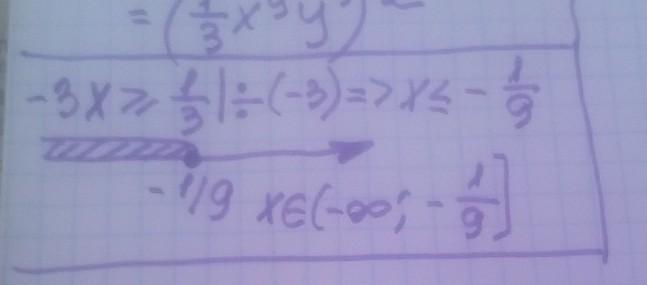 = (1/3 x³y)²
-3x ≥ 1/3 | ÷ (-3) => x ≤ - 1/9
-1/9 x∈(-∞; - 1/9]